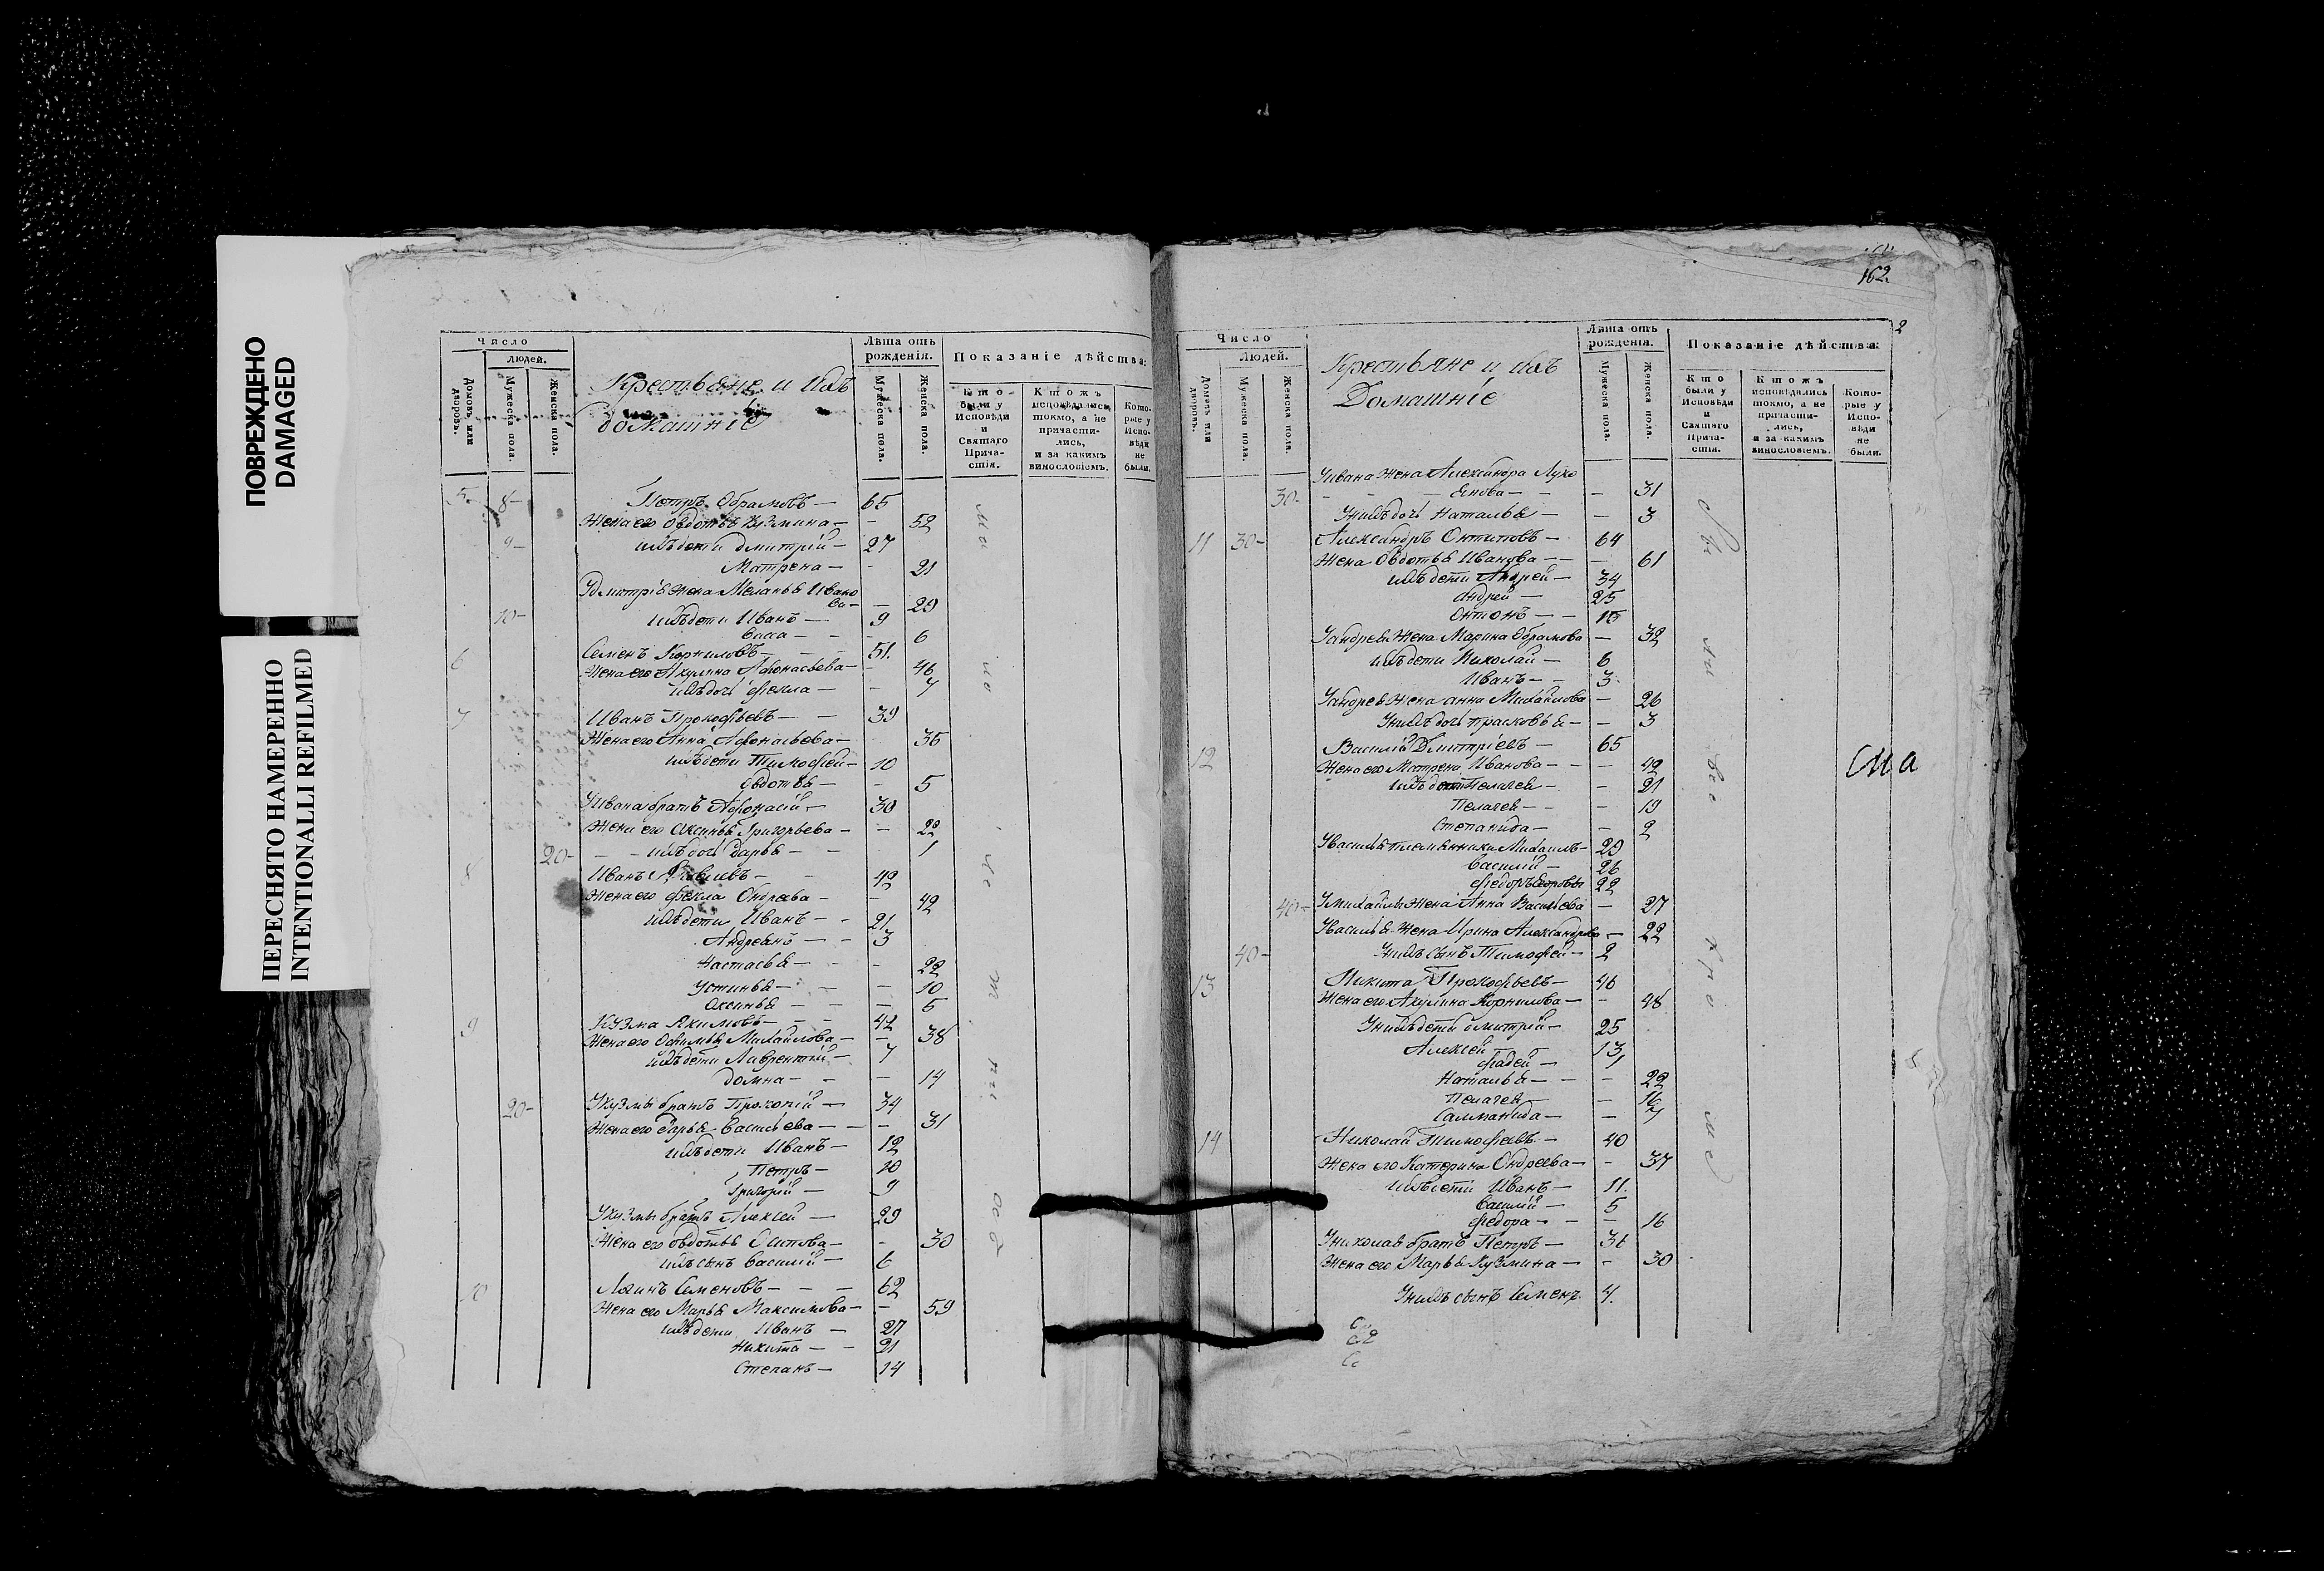 ПОВРЕЖДЕНО
DAMAGED
ПЕРЕСНЯТО НАМЕРЕННО
INTENTIONALLI REFILMED
Число
людей.
Домовъ или дворовъ.
Мужеска пола.
Женска пола.
Крестьяне и ихъ
домашніе
Лѣта отъ рожденія.
Мужеска пола.
Женска пола.
Показаніе дѣйства:
Кто были у Исповѣди и Святаго Причастія.
Ктожъ исповѣдались токмо, а не причастились, и за какимъ винословіемъ.
Которые у Исповѣди не были.
5. 8- Петръ Обрамовъ — 65
Жена его Овдотья Кузмина — - 52
9- ихъ дети Дмитрій — 27
Матрена — - 21
У дмитрія жена Меланья Ивано
ва — — 29
10- ихъ дети Иванъ — 9
Васса — - - 6
6 Семенъ Корниловъ — - - 51.
Жена его Акулина Афонасьева — - 46
ихъ дочь Фекла — - 7
7 Иванъ Прокофьевъ — — 39
Жена его Анна Афонасьева — 36
ихъ дети Тимофей — 10
Овдотья — - 5
У ивана братъ Афонасій — 30
Жена его Оксинья Григорьева — — 22
20- — - ихъ дочь дарья — — 1
8 Иванъ Яковлевъ — - 42
Жена его Фекла Ондреева — — 42
ихъ дети Иванъ — - 21
Андреянъ — — 3
Настасья — - - 22
Устинья — — — 10
Оксинья — — — 5
9 Кузма Якимовъ — — — 42
Жена его Офимья Михайлова — — 38
ихъ дети Лаврентій — 7
домна — — — 14
20- У кузмы братъ Прокопій — 34
Жена его Дарья Васильева — — — 31
ихъ дети Иванъ — 12
Петръ — 10
Григорій — 9
У кузмы братъ Алексей — 29
Жена его Овдотья Осипова — - 30
ихъ сынъ Василій — 6
10 Логинъ Семеновъ — — — 62
Жена его Марья Максимова — — 59
ихъ дети Иванъ — 27
Никита — — 21
Степанъ — 14
162.
2
Число
Людей.
Домовъ или дворовъ.
Мужеска пола.
Женска пола.
Крестьяне и ихъ
Домашніе
Лѣта отъ рожденія.
Мужеска пола.
Женска пола.
Показаніе дѣйства:
Кто были у Исповѣди и Святаго Причастія.
Ктожъ исповѣдались токмо, а не причастились, и за какимъ винословіемъ.
Которые у Исповѣди не были.
У ивана жена Александра Луко
30- - - янова — - — 31
У нихъ дочь Наталья — — 3
11 30- Александръ Онтиповъ — 64
Жена Овдотья Иванова — — — 61
ихъ дети Андрей — 34
андрей — 25
Онтонъ — — 15
У андрея жена Марина Обрамова — 32
ихъ дети Николай — 6
Иванъ — - 3
У андрея жена анна Михайлова — 26
У нихъ дочь прасковья — — 3
12 Василій Дмитріевъ — 65
Жена его Матрена Иванова — — — 42
ихъ дети Пелагея — - 21
Пелагея — — - 19
Степанида — — 2
У василья племянники Михаилъ — 29
василій — 26
Федоръ Егоровы 22
40- У михайлы жена Анна Васильева — 27
У василья жена Ирина Александрова — 22
40- У нихъ сынъ Тимофей — 2
13 Никита Прокофьевъ — 46
Жена его Акулина Корнилова — - 48
У нихъ дети дмитрій — 25
Алексей — 13
Фадей — 1
Наталья — — — 22
Пелагея — — 16
— — 7
14 Николай Тимофеевъ — 40
Жена его Катерина Ондреева — - 37
ихъ дети Иванъ — 11.
Василій — 5
Федора — — — 16
У николая братъ Петръ —
Жена его Марья Кузмина — - 30
У нихъ сынъ Семенъ 4.
сша